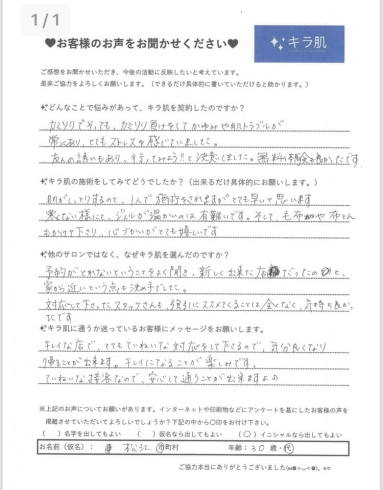 1/1
♥お客様のお声をお聞かせください♥
キラ肌
ご感想をお聞かせいただき、今後の活動に反映したいと考えています。
是非ご協力をよろしくお願いします。（できるだけ具体的に書いていただけると助かります。）
どんなことで悩みがあって、キラ肌を契約したのですか？
カミソリでそっても、カミソリ負けをしてかゆみや肌トラブルが
常にあり、とてもストレスを感じていました。
友人の誘いもあり、行ってみよう!!と決意しました。無料体験も良かったです
キラ肌の施術をしてみてどうでしたか？（出来るだけ具体的にお願いします。）
肌がしっとりするのと、1人で施術をされますがとても早いと思います
寒くない様にと、ジェルが温かいのは有難いです。そして、毛布や布とん
もかけて下さり、心づかいがとても嬉しいです
他のサロンではなく、なぜキラ肌を選んだのですか？
予約がとれないということをよく聞き、新しく出来た店だったのと、
家から近いという点も決め手でした。
対応して下さったスタッフさんも、強引にススメてくることは全くなく、気持の良い
たです
キラ肌に通うか迷っているお客様にメッセージをお願いします。
キレイな店で、とてもていねいな対応をして下さるので、気分良くなり
帰ることが出来ます。キレイになることが楽しみです。
ていねいな接客なので、安心して通うことが出来ますよ
※上記のお声についてお願いがあります。インターネットや印刷物などにアンケートを基にしたお客様の声を
掲載させていただいてよろしいでしょうか？下記の中から○印をお付け下さい。
（　）名字を出してもよい　（　）仮名なら出してもよい　（○）イニシャルなら出してもよい
お名前（仮名）：　松江　市町村　年齢：30歳・代
ご協力本当にありがとうございました